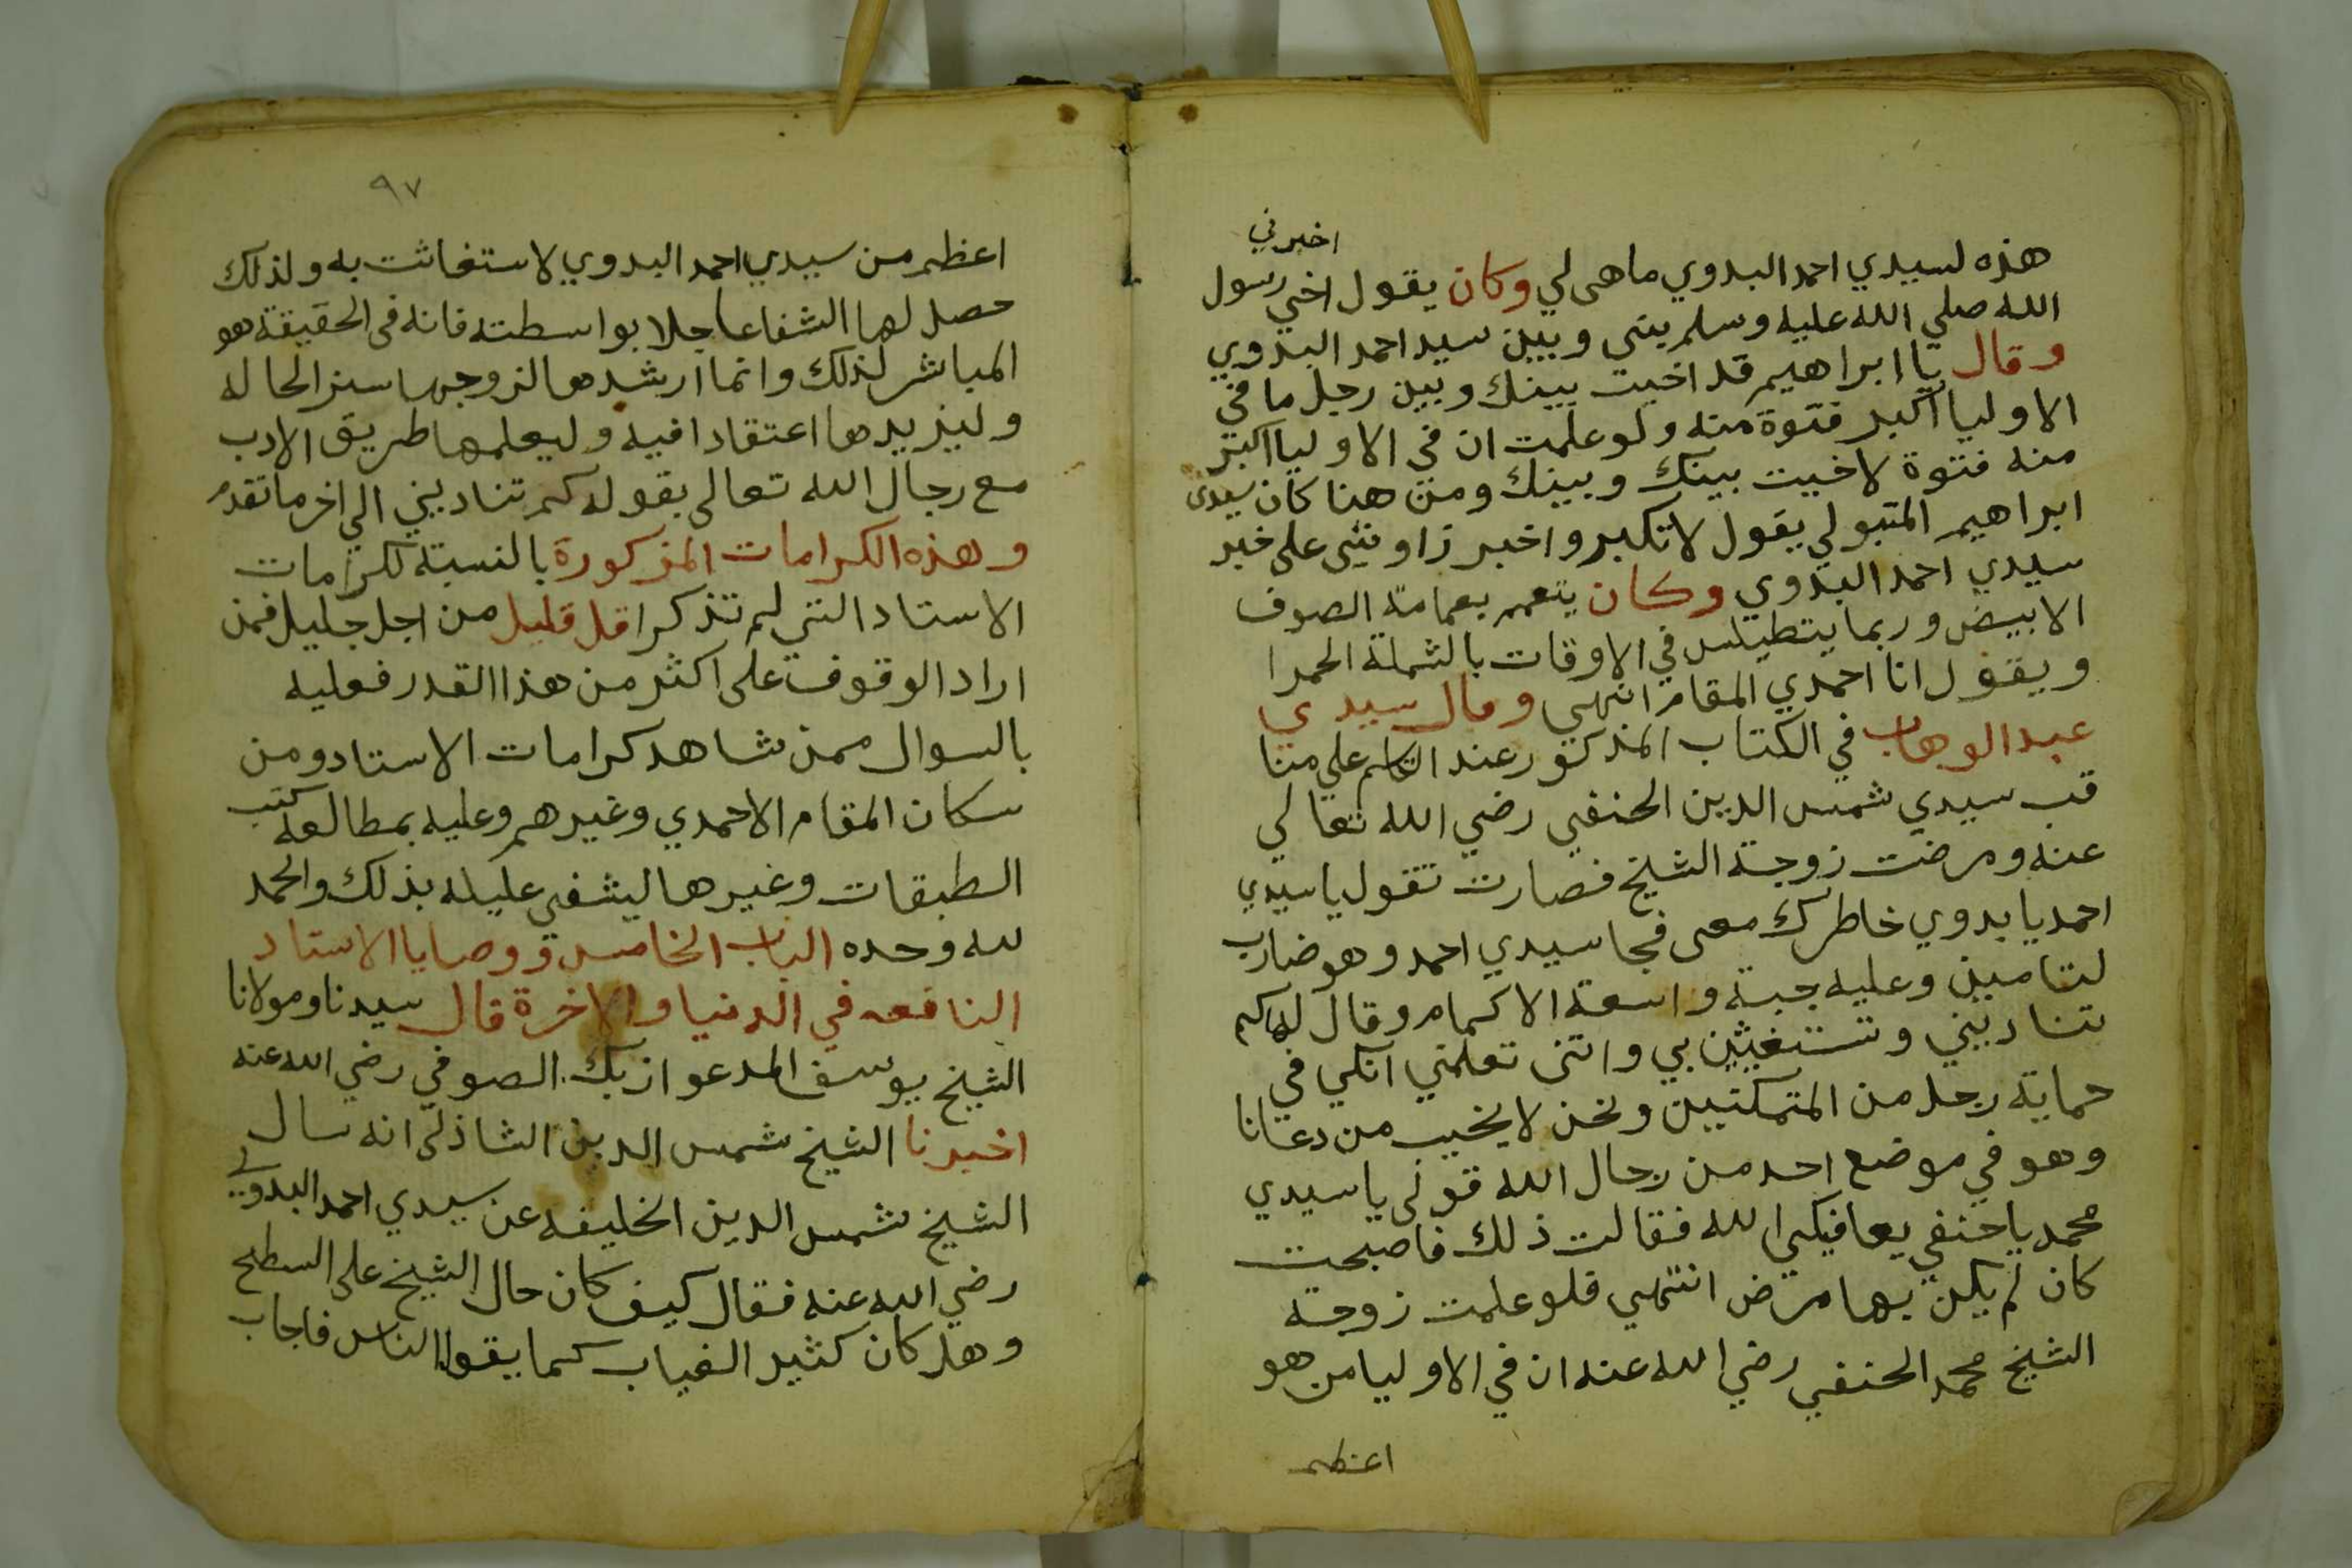 اخبرني
هذه لسيدي احمد البدوي ماهى لي وكان يقول اخي رسول
الله صلي الله عليه وسلم بيني وبين سيد احمد البدوي
وقال يا ابراهيم قد اخيت بينك وبين رجل ما في
الاوليا اكبر فتوة منه ولو علمت ان في الاوليا اكبر
منه فتوة لاخيت بينك وبينك ومن هنا كان سيدى
ابراهيم المتبولي يقول لا تكبر واخبر زاويتى على خبر
سيدي احمد البدوي وكان يتعمم بعمامة الصوف
الابيض وربما يتطيلس في الاوقات بالشملة الحمرا
ويقول انا احمدي المقام انتهى وقال سيدي
عبد الوهاب في الكتاب المذكور عند الكلام على منا
قب سيدي شمس الدين الحنفي رضي الله تعالي
عنه ومرضت زوجة الشيخ فصارت تقول يا سيدي
احمد يا بدوي خاطرك معى فجا سيدي احمد وهو ضارب
لثامين وعليه جبة واسعة الاكمام وقال لها كم
تناديني وتستغيثين بي وانتى تعلمي انكي في
حماية رجل من المتمكنين ونحن لا يخيب من دعانا
وهو في موضع احد من رجال الله قولى يا سيدي
محمد يا حنفي يعافيكى الله فقالت ذلك فاصبحت
كان لم يكن بها مرض انتهى فلو علمت زوجة
الشيخ محمد الحنفي رضي الله عنه ان في الاوليا من هو
اعظم
٩٧
اعظم من سيدي احمد البدوي لاستغاثت به ولذلك
حصل لها الشفا عاجلا بواسطته فانه فى الحقيقة هو
المباشر لذلك وانما ارشدها لزوجها ستر الحاله
وليزيدها اعتقادا فيه وليعلمها طريق الادب
مع رجال الله تعالى بقوله كم تناديني الي اخر ما تقدم
وهذه الكرامات المذكورة بالنسبة لكرامات
الاستاد التي لم تذكر اقل قليل من اجل جليل فمن
اراد الوقوف على اكثر من هذا القدر فعليه
بالسوال ممن شاهد كرامات الاستاد ومن
سكان المقام الاحمدي وغيرهم وعليه بمطالعة كتب
الطبقات وغيرها ليشفى عليله بذلك والحمد
لله وحده الباب الخامس في وصايا الاستاد
النافعه في الدنيا والاخرة قال سيدنا ومولانا
الشيخ يوسف المدعو ازبك الصوفي رضي الله عنه
اخبرنا الشيخ شمس الدين الشاذلى انه سال
الشيخ شمس الدين الخليفه عن سيدي احمد البدوي
رضي الله عنه فقال كيف كان حال الشيخ على السطح
وهل كان كثير الغياب كما يقول الناس فاجاب